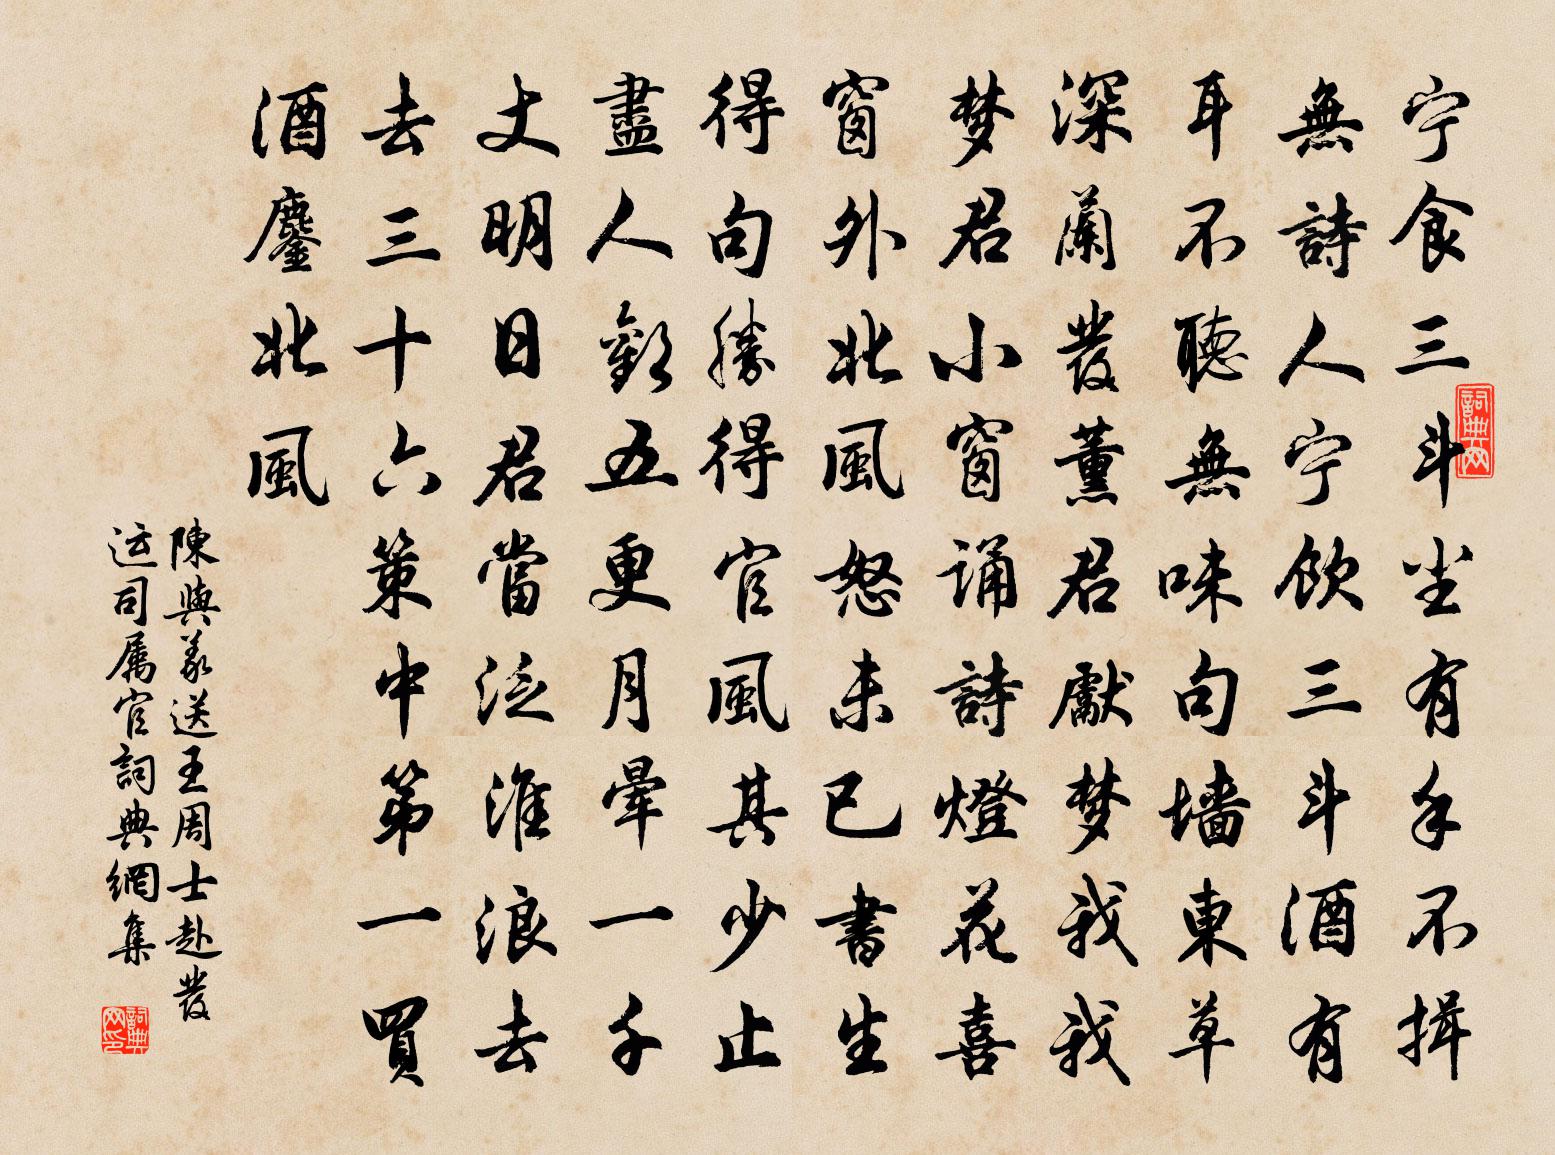 宁食三斗尘有手不揖
無詩人宁飲三斗酒有
耳不聽無味句墻東草
深蘭發薰君獻梦我我
梦君小窗诵詩燈花喜
窗外北風怒未已書生
得句勝得官風其少止
盡人歡五更月暈一千
丈明日君當泛淮浪去
去三十六策中第一買
酒鏖北風
陳與義送王周士赴發
运司属官詞典網集
詞典网
詞典网印